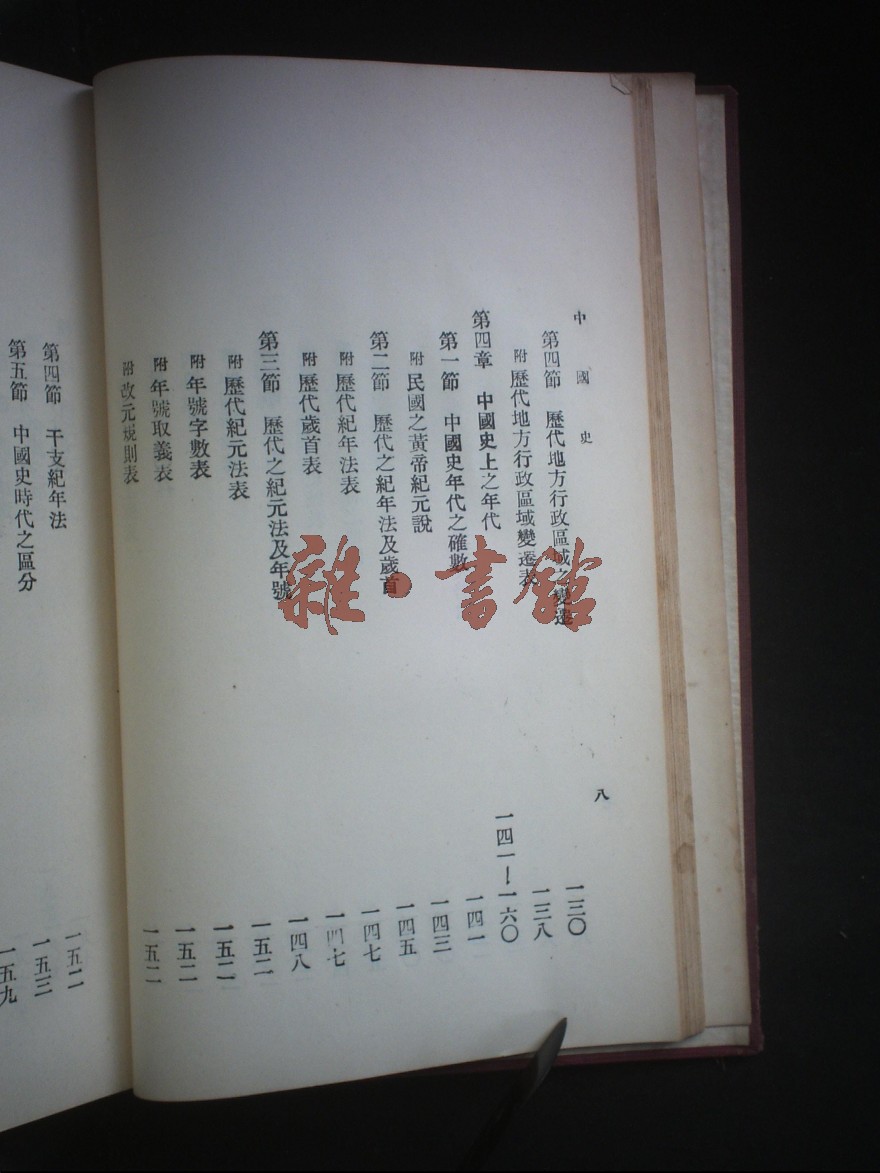 中國史 八
第四節 歷代地方行政區域之變遷 一三〇
附 歷代地方行政區域變遷表 一三八
第四章 中國史上之年代 一四一—一六〇
第一節 中國史年代之確數 一四一
附 民國之黃帝紀元說 一四三
第二節 歷代之紀年法及歲首 一四五
附 歷代紀年法表 一四七
附 歷代歲首表 一四七
第三節 歷代之紀元法及年號 一四八
附 歷代紀元法表 一五二
附 年號字數表 一五二
附 年號取義表 一五二
附 改元規則表 一五二
第四節 干支紀年法 一五二
第五節 中國史時代之區分 一五三
一五九
雜·書館